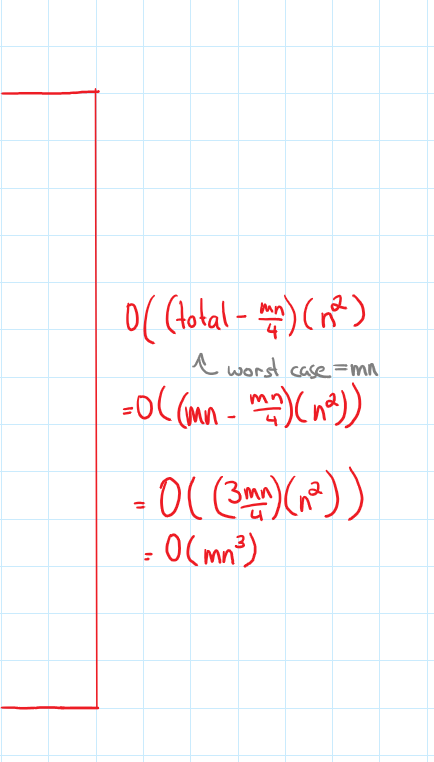 O((total - mn/4)(n²)
↖ worst case = mn
= O((mn - mn/4)(n²))
= O((3mn/4)(n²))
= O(mn³)